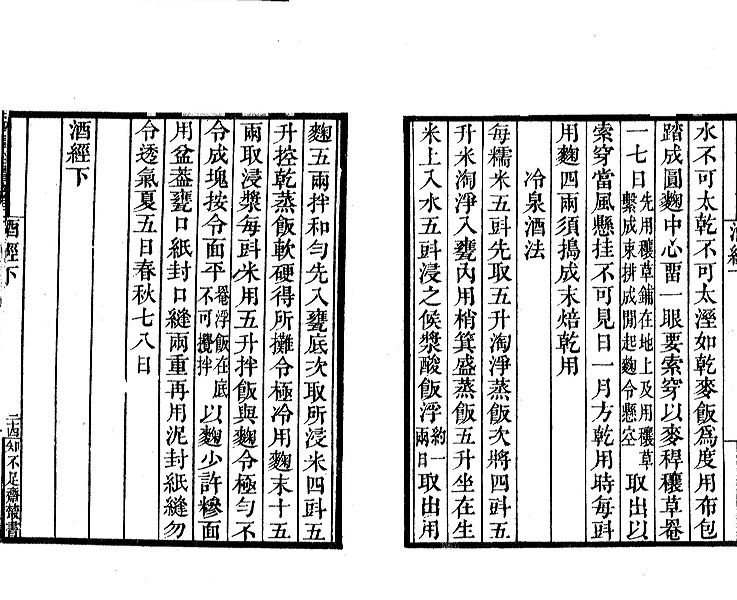 水不可太乾不可太溼如乾麥飯爲度用布包
踏成圓麴中心畱一眼要索穿以麥稈穰草罨
一七日先用穰草鋪在地上及用穰草繫成束排成閒起麴令懸空取出以
索穿當風懸挂不可見日一月方乾用時每㪷
用麴四兩須擣成末焙乾用
冷泉酒法
每糯米五㪷先取五升淘淨蒸飯次將四㪷五
升米淘淨入甕內用梢箕盛蒸飯五升坐在生
米上入水五㪷浸之候漿酸飯浮約一兩日取出用
麴五兩拌和勻先入甕底次取所浸米四㪷五
升控乾蒸飯軟硬得所攤令極冷用麴末十五
兩取浸漿每㪷米用五升拌飯與麴令極勻不
令成塊按令面平罨浮飯在底不可攪拌以麴少許糝面
用盆葢甕口紙封口縫兩重再用泥封紙縫勿
令透氣夏五日春秋七八日
酒經下
酒經下
二十四
知不足齋叢書